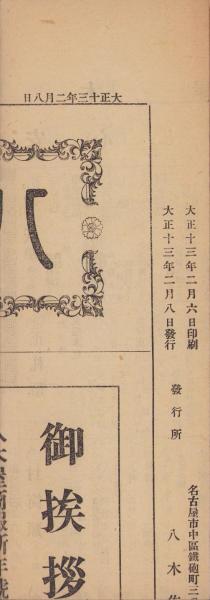 大正十三年二月八日
大正十三年二月六日印刷
大正十三年二月八日發行
發行所
名古屋市中區鐵砲町三
八木
八
御挨拶